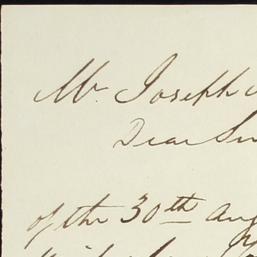 Mr. Joseph
Dear Sir
of the 30th Aug